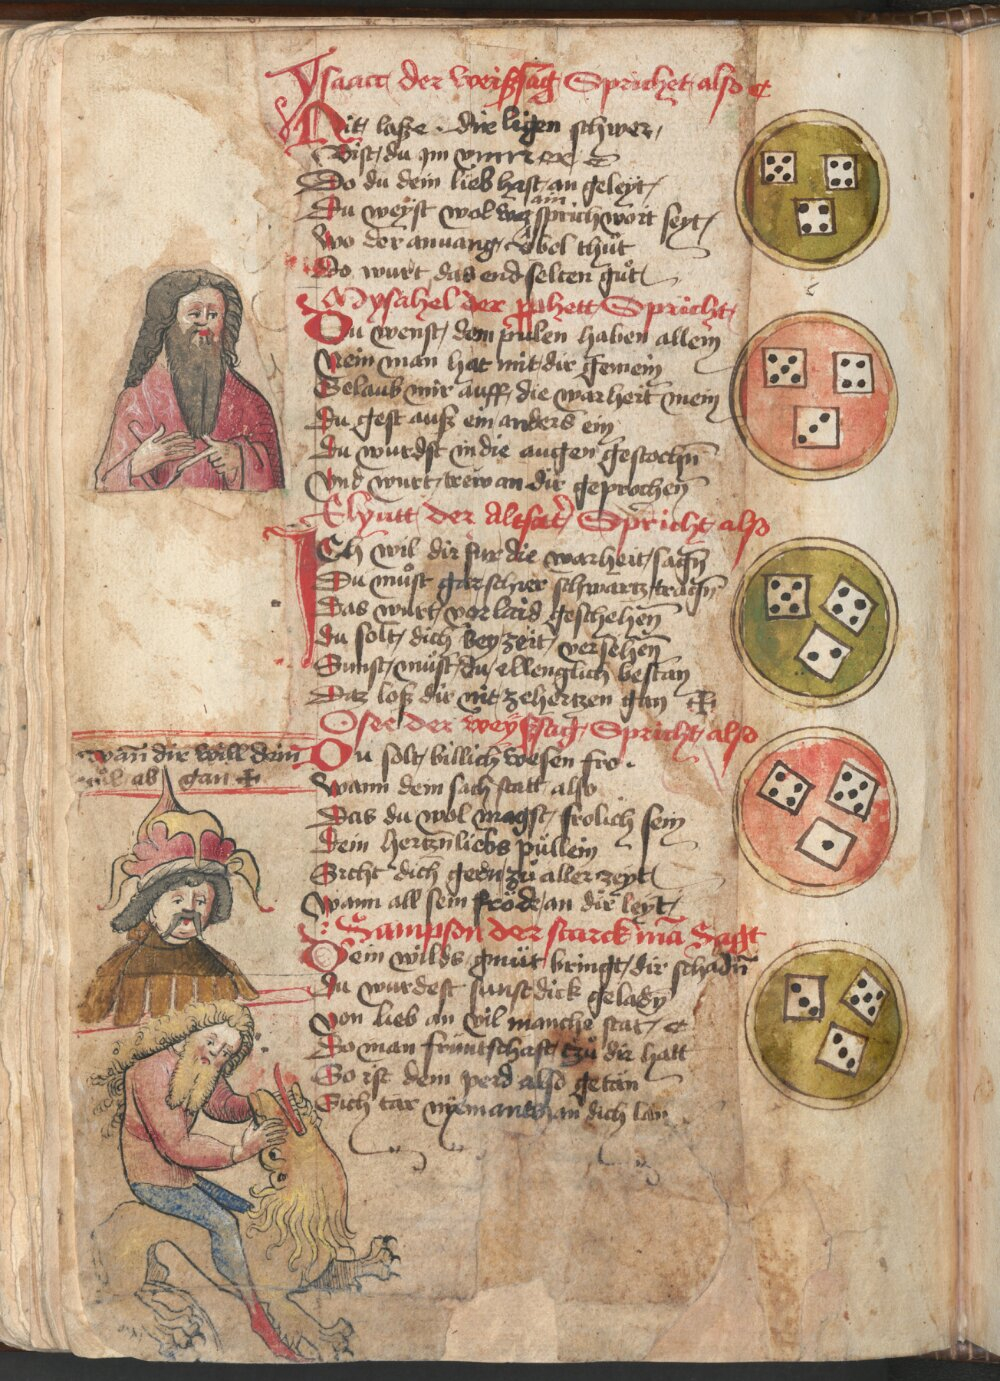 Ysaacc der weissag Sprichet also
Nit lasze die ligen schwer
Bist du jm
Do du dein lieb hast an geleyt
Du weyst wol ain sprich wort seyt
Wo der anuang übel thůt
Do wurt das end selten gůt
Mysahel der prophett Spricht
Du wenst dem pulen haben allein
Nein man hat mit dir gemein
Gelaub mir auff die warheit mein
Du gest ausz ein anders ein
Du wurdst in die augen gestochn
Vnd wurt trew an dir geprochen
Elyutt der Spricht also
Ich wil dir fur die warheit sagn
Du můst gar schier schwartz tragn
Das wurt vor laid geschehen
du solt dich bey zeit versehen
Sunst můst du ellenglich bestan
Daz losz dir nit ze hertzen gan
Osee der weyssag Spricht also
wan dir will dein
ab gan
Du solt billich wesen fro
Wann dem sach statt also
Das du wol magst frolich sein
Dein hertzn liebs püllein
Sicht dich gern zů aller zeyt
Wann all sein fröde an dir leyt
Sampson der starck mã Sagt
Dein wilds gmüt bringt dir schadn
du wurdest sunst dick geladn
Von lieb an vil manche stat
Do man fruntschaft tzů dir hatt
So ist dem perd also getan
Sich tar nyemants an dich lan